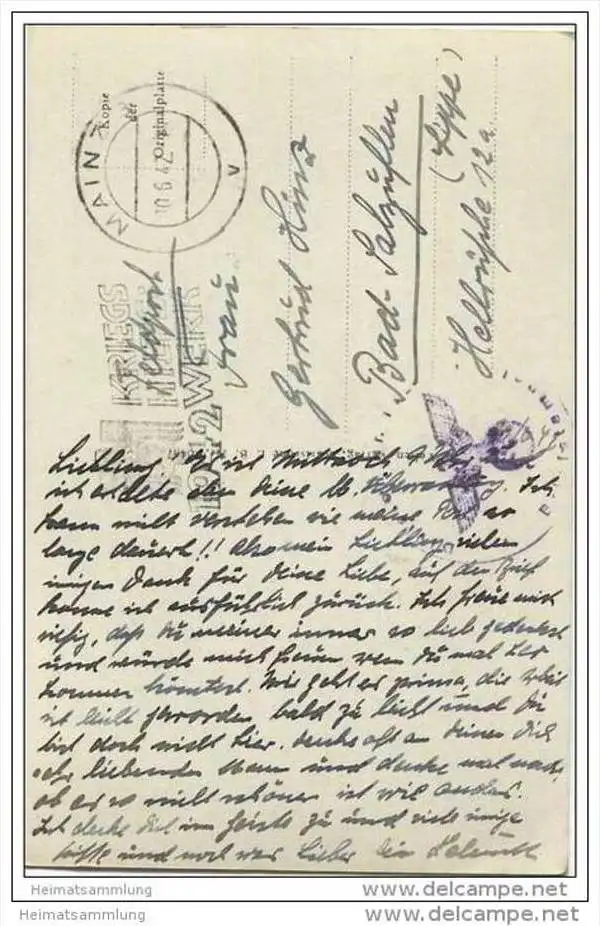 Kopie
der
Originalplatte
MAINZ
10.6.42
V
KRIEGS
1942 WERK
Feldpost
Frau
Gertrud
Bad-Salzuflen
(Lippe)
12a.
Liebling, ist Mittwoch
ich deine lb. Ich
kann nicht verstehen wie meine so
lange dauert!! Also mein Liebling vielen
innigen Dank für deine Liebe, auf den Brief
komme ich ausführlich zurück. Ich freue mich
riesig, daß du meiner immer so lieb gedenkst
und würde mich freuen wenn du mal her
kommen könntest. Mir geht es prima, die Arbeit
ist leicht geworden bald zu leicht und du
bist doch nicht hier. denke oft an deinen dich
sehr liebenden Mann und denke mal nach,
ob es so nicht schöner ist wie anders.
Ich decke dich im Geiste zu und viele innige
Küsse und noch was lieber dein Helmuth
Heimatsammlung
Heimatsammlung
www.delcampe.net
www.delcampe.net